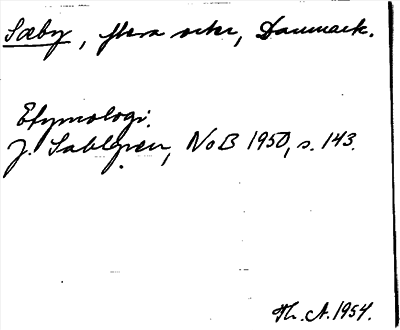 Sæby, flera orter, Danmark.
Etymologi.
J. Sahlgren, NoB 1950, s. 143.
Th. A. 1954.